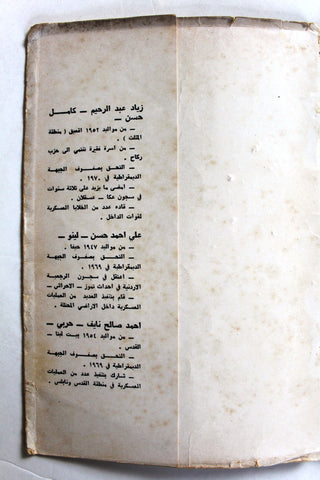 زياد عبد الرحيم ــ كامل
حسن ــ
ــ من مواليد ١٩٥٢ ( منطقة
المثلث ) .
ــ من أسرة فقيرة تنتمي الى حزب
ركاح .
ــ التحق بصفوف الجبهة
الديمقراطية في ١٩٧٠ .
ــ أمضى ما يزيد على ثلاثة سنوات
في سجون عكا ــ عسقلان .
ــ قاده عدد من الخلايا العسكرية
لقوات الداخل .
علي احمد حسن ــ لينو ــ
ــ من مواليد ١٩٤٧ حيفا .
ــ التحق بصفوف الجبهة
الديمقراطية في ١٩٦٩ .
ــ اعتقل في سجون الرجعية
الاردنية في احداث تموز ــ الاحراش ــ
ــ قام بتنفيذ العديد من العمليات
العسكرية داخل الاراضي المحتلة .
احمد صالح نايف ــ حربي ــ
ــ من مواليد ١٩٥٤ بيت لقيا ــ
القدس .
ــ التحق بصفوف الجبهة
الديمقراطية في ١٩٦٩ .
ــ شارك بتنفيذ عدد من العمليات
العسكرية في منطقة القدس ونابلس .